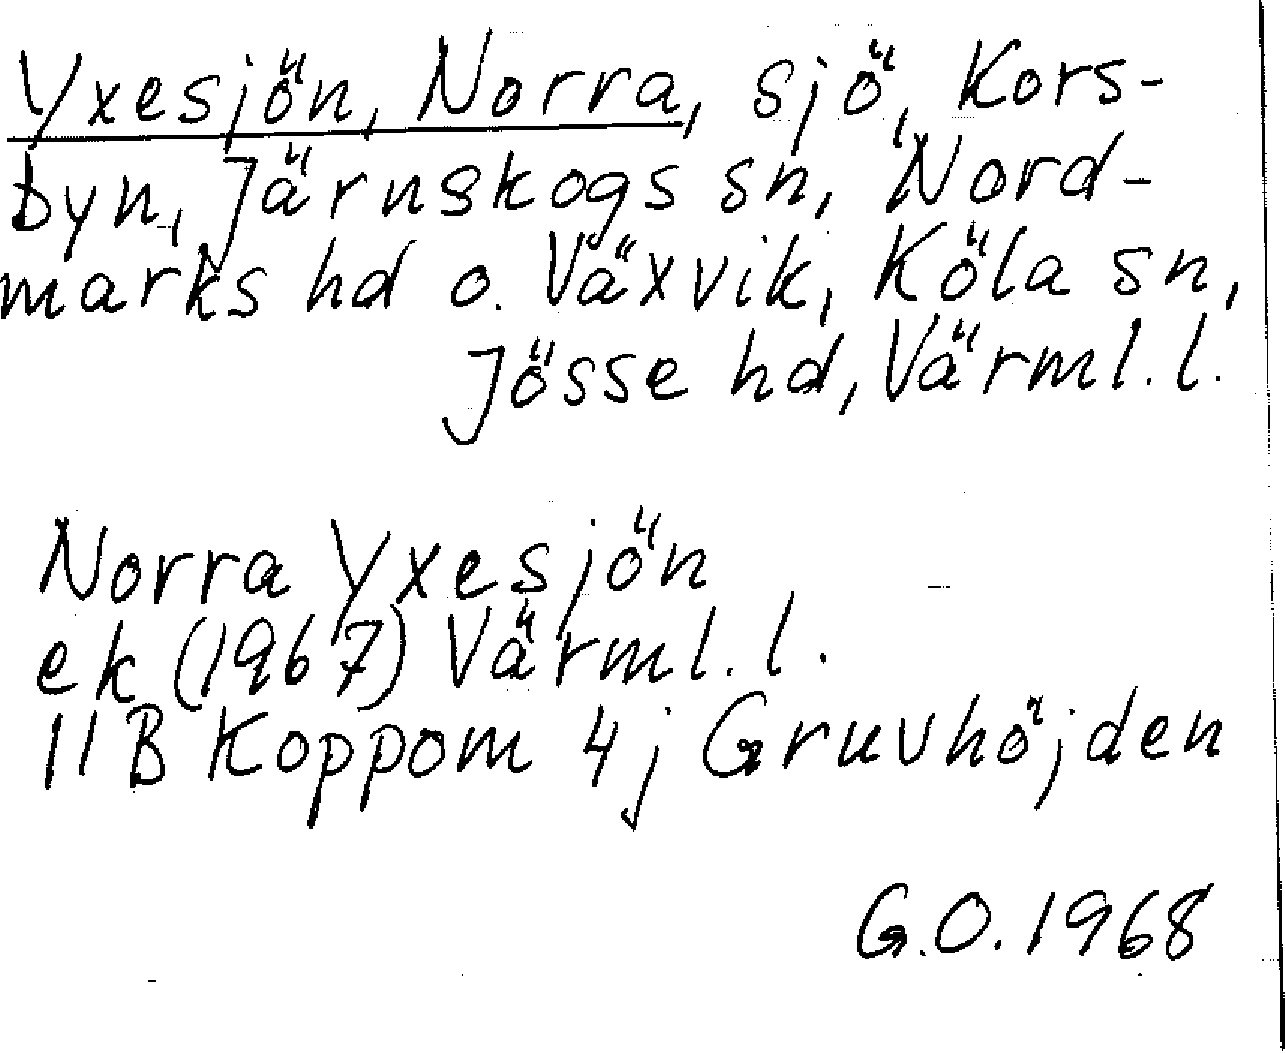 Yxesjön, Norra, sjö, Kors-
byn, Järnskogs sn, Nord-
marks hd o. Växvik, Köla sn,
Jösse hd, Värml. l.
Norra Yxesjön
ek (1967) Värml. l.
11B Koppom 4j Gruvhöjden
G.O. 1968